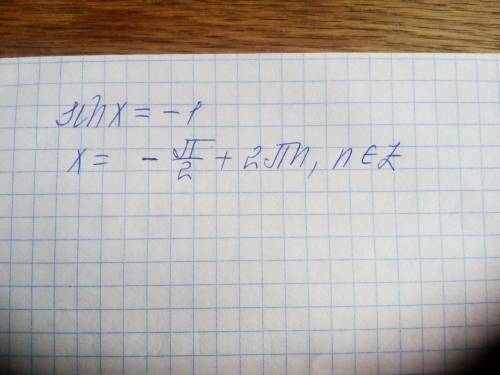 sin x = -1
x = -π/2 + 2πn, n ∈ Z